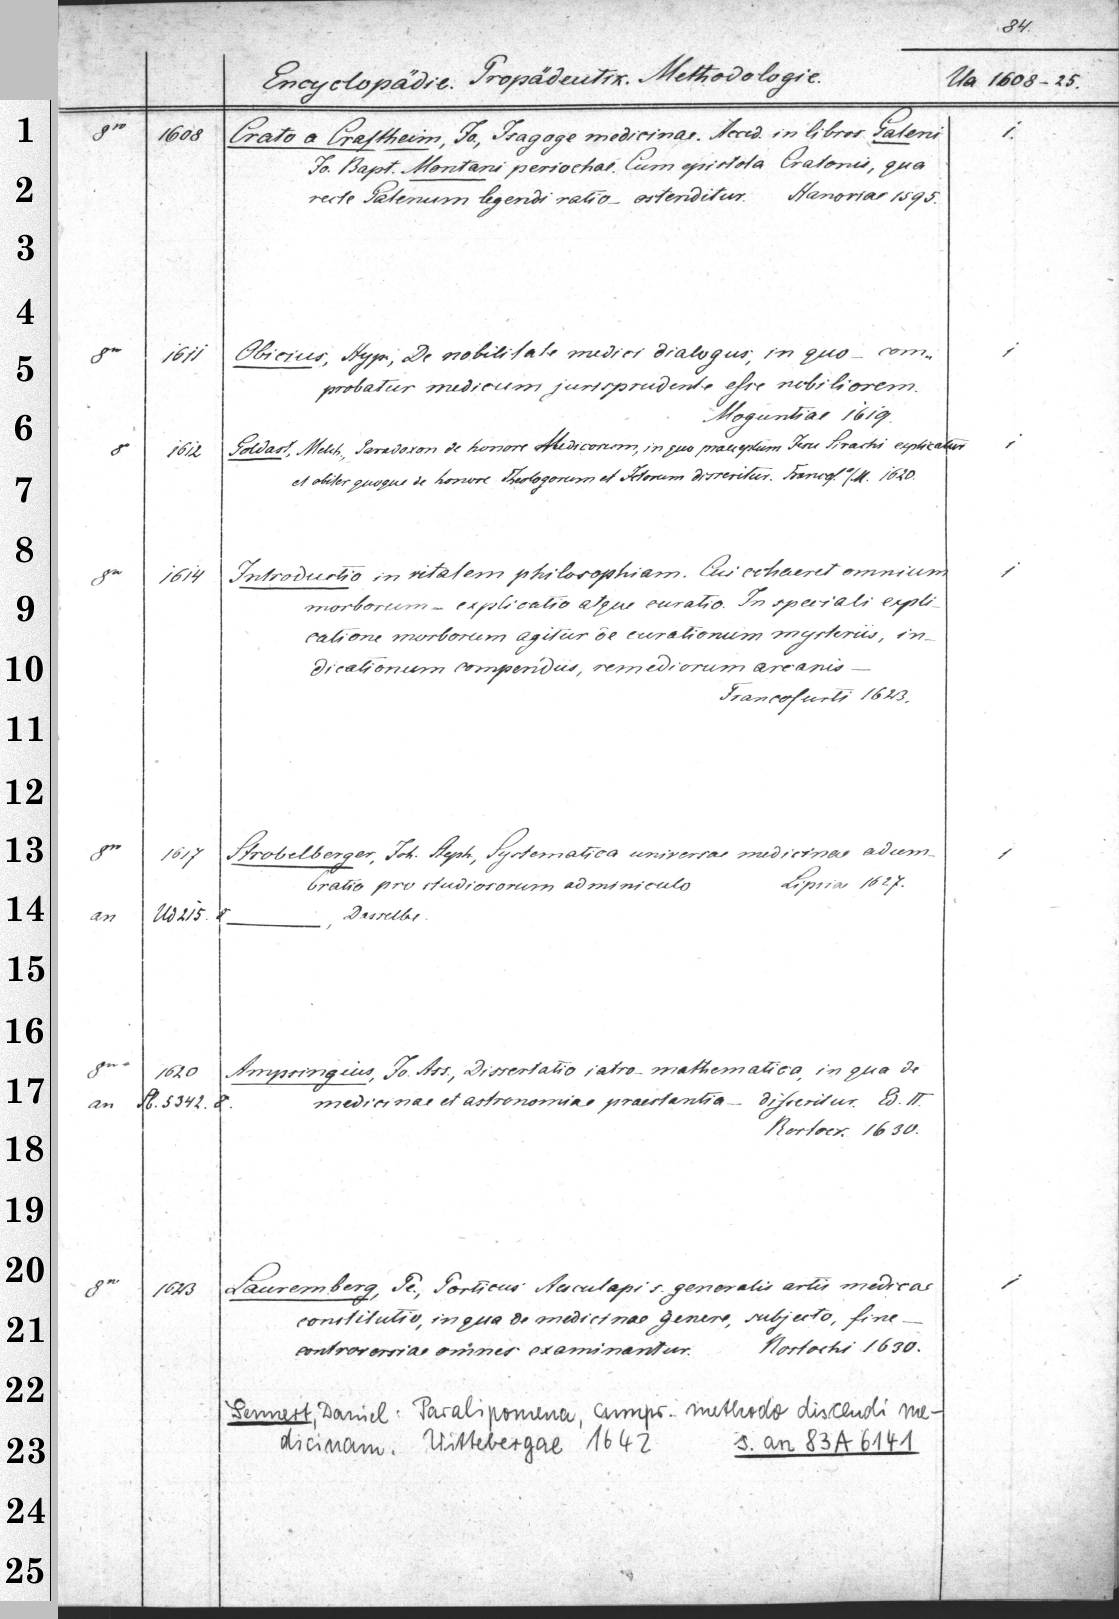 84.
Encyclopädie. Propädeutik. Methodologie. Ua 1608-25.
1 8vo 1608 Crato a Craftheim, Jo., Isagoge medicinae. Acced. in libros Galeni i.
Jo. Bapt. Montani periochae. Cum epistola Cratonis, qua
2 recte Galenum legendi ratio _ ostenditur. Hanoviae 1595.
3
4
8vo 1611 Obicius, Hypp., De nobilitate medici dialogus, in quo _ com- i
5 probatur medicum jurisprudente esse nobiliorem.
Moguntiae 1619.
6 8 1612 Goldast, Melch., Paradoxon de honore Medicorum, in quo praeceptum Jesu Sirachi explicatur i
7 et obiter quoque de honore Theologorum et Ictorum disseritur. Francof. a/M. 1620.
8 8vo 1614 Introductio in vitalem philosophiam. Cui cohaeret omnium i
9 morborum _ explicatio atque curatio. In speciali expli-
catione morborum agitur de curationum mysteriis, in-
10 dicationum compendiis, remediorum arcanis _
11 Francofurti 1623.
12
13 8vo 1617 Strobelberger, Joh. Steph., Systematica universae medicinae adum- i
bratio pro studiosorum adminiculo Lipsiae 1627.
14 an Ud 215. 8 ____, Dasselbe.
15
16
8vo 1620 Ampsingius, Jo. Ass., Dissertatio iatro-mathematica, in qua de
17 an Pb. 5342. 8. medicinae et astronomiae praestantia _ disseritur. Ed. II.
18 Rostoch. 1630.
19
20 8vo 1623 Lauremberg, Pe., Porticus Aesculapi s. generalis artis medicae i
21 constitutio, in qua de medicinae genere, subjecto, fine _
controversiae omnes examinantur. Rostochi 1630.
22 Sennert, Daniel: Paralipomena, cum pr. methodo discendi me-
23 dicinam. Wittebergae 1642 s. an 83 A 6141
24
25